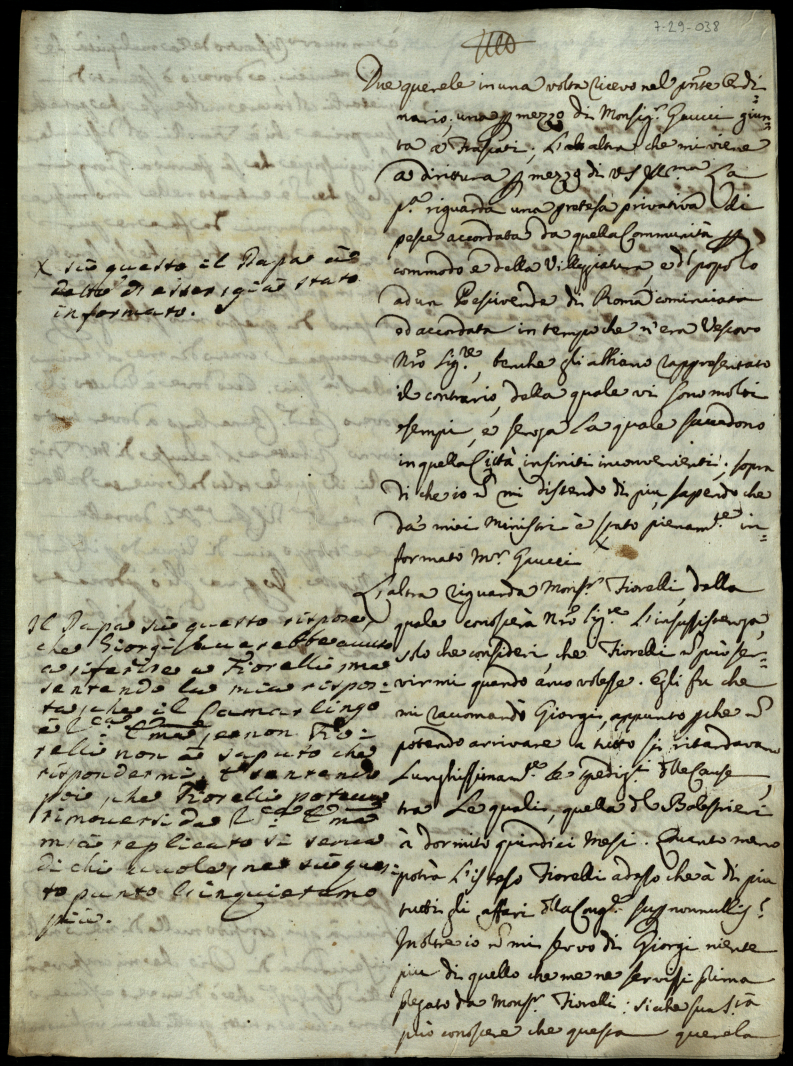 7-29-038
Due querele in una volta ricevo nel pñte Ordi=
nario, una p mezzo di Monsig.r Gaucci giun=
ta à Frascati; L'altra che mi viene
a dirittura p mezzo di VS Ill.ma La
p.a riguarda una pretesa privativa di
pesce accordata da quella Communità p
commodo e della Villegiatura, e dl popolo
ad un Pescivendo di Roma cominciata
ed accordata in tempo che n'era Vescovo
Nrõ Sig.re, benche gli abbiano rappresentato
il contrario, della quale vi sono molti
esempi, e senza La quale succedono
in quella Città infiniti inconvenienti; sopra
di che io ñ mi distendo di piu, sapendo che
da' miei Ministri è stato pienam.te in=
formato M.r Gaucci X
L'altra riguarda Mons.r Fiorelli, della
quale conoscerà Nrõ Sig.re L'insussistenza,
solo che consideri, che Fiorelli ñ può ser=
virmi quando anco volesse. Egli fu che
mi raccomandò Giorgi, appunto pche ñ
potendo arrivare a tutto si ritardavano
Lunghissimam.te le spediz.i dlle Cause,
tra Le quali, quella dl Balestrieri
à dormito quindici Mesi. Quanto meno
potrà L'istesso Fiorelli adesso che à di piu
tutti gli affari dlla Cong.e sup nonnullis?
Inoltre io ñ mi servo di Giorgi niente
piu di quello che me ne servissi prima
pregato da Mons.r Fiorelli: siche sua S.tà
può conoscere che questa querela
X Sù questo il Papa à
detto di esser già stato
informato.
Il Papa sù questo rispose,
che Giorgi avrebbe avuto
a riferire a Fiorelli, ma
sentendo la mia rispos=
ta, che il Camarlingo
è l'E.ma, e non Fio=
relli non à saputo che
rispondermi, e sentendo
poi, che Fiorelli poteva
rimoversi da l'E.ma
mi à replicato si serva
di chi vuole, ne sù ques=
to punto l'inquietamo
più.